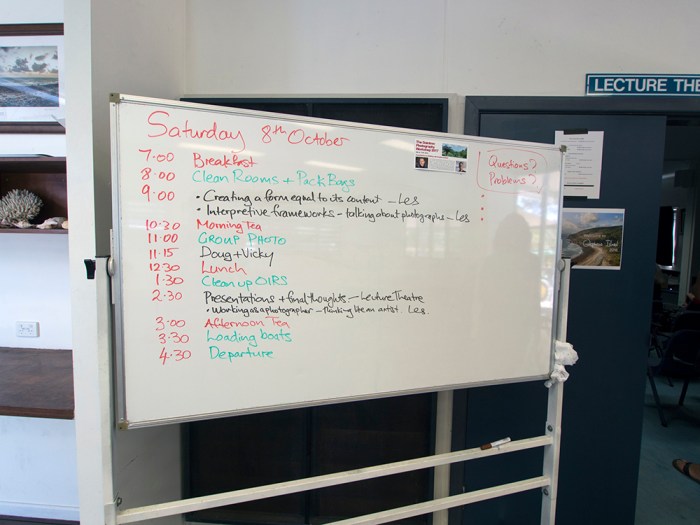 LECTURE THE
Saturday 8th October
7.00 Breakfast
8.00 Clean Rooms + Pack Bags
9.00 • Creating a form equal to its content - Les
• Interpretive frameworks - talking about photographs - Les
10.30 Morning Tea
11.00 GROUP PHOTO
11.15 Doug + Vicky
12.30 Lunch
1.30 Clean up OIRS
2.30 Presentations + final thoughts - Lecture Theatre
• Working as a photographer - thinking like an artist Les.
3.00 Afternoon Tea
3.30 Loading boats
4.30 Departure
Questions?
Problems?